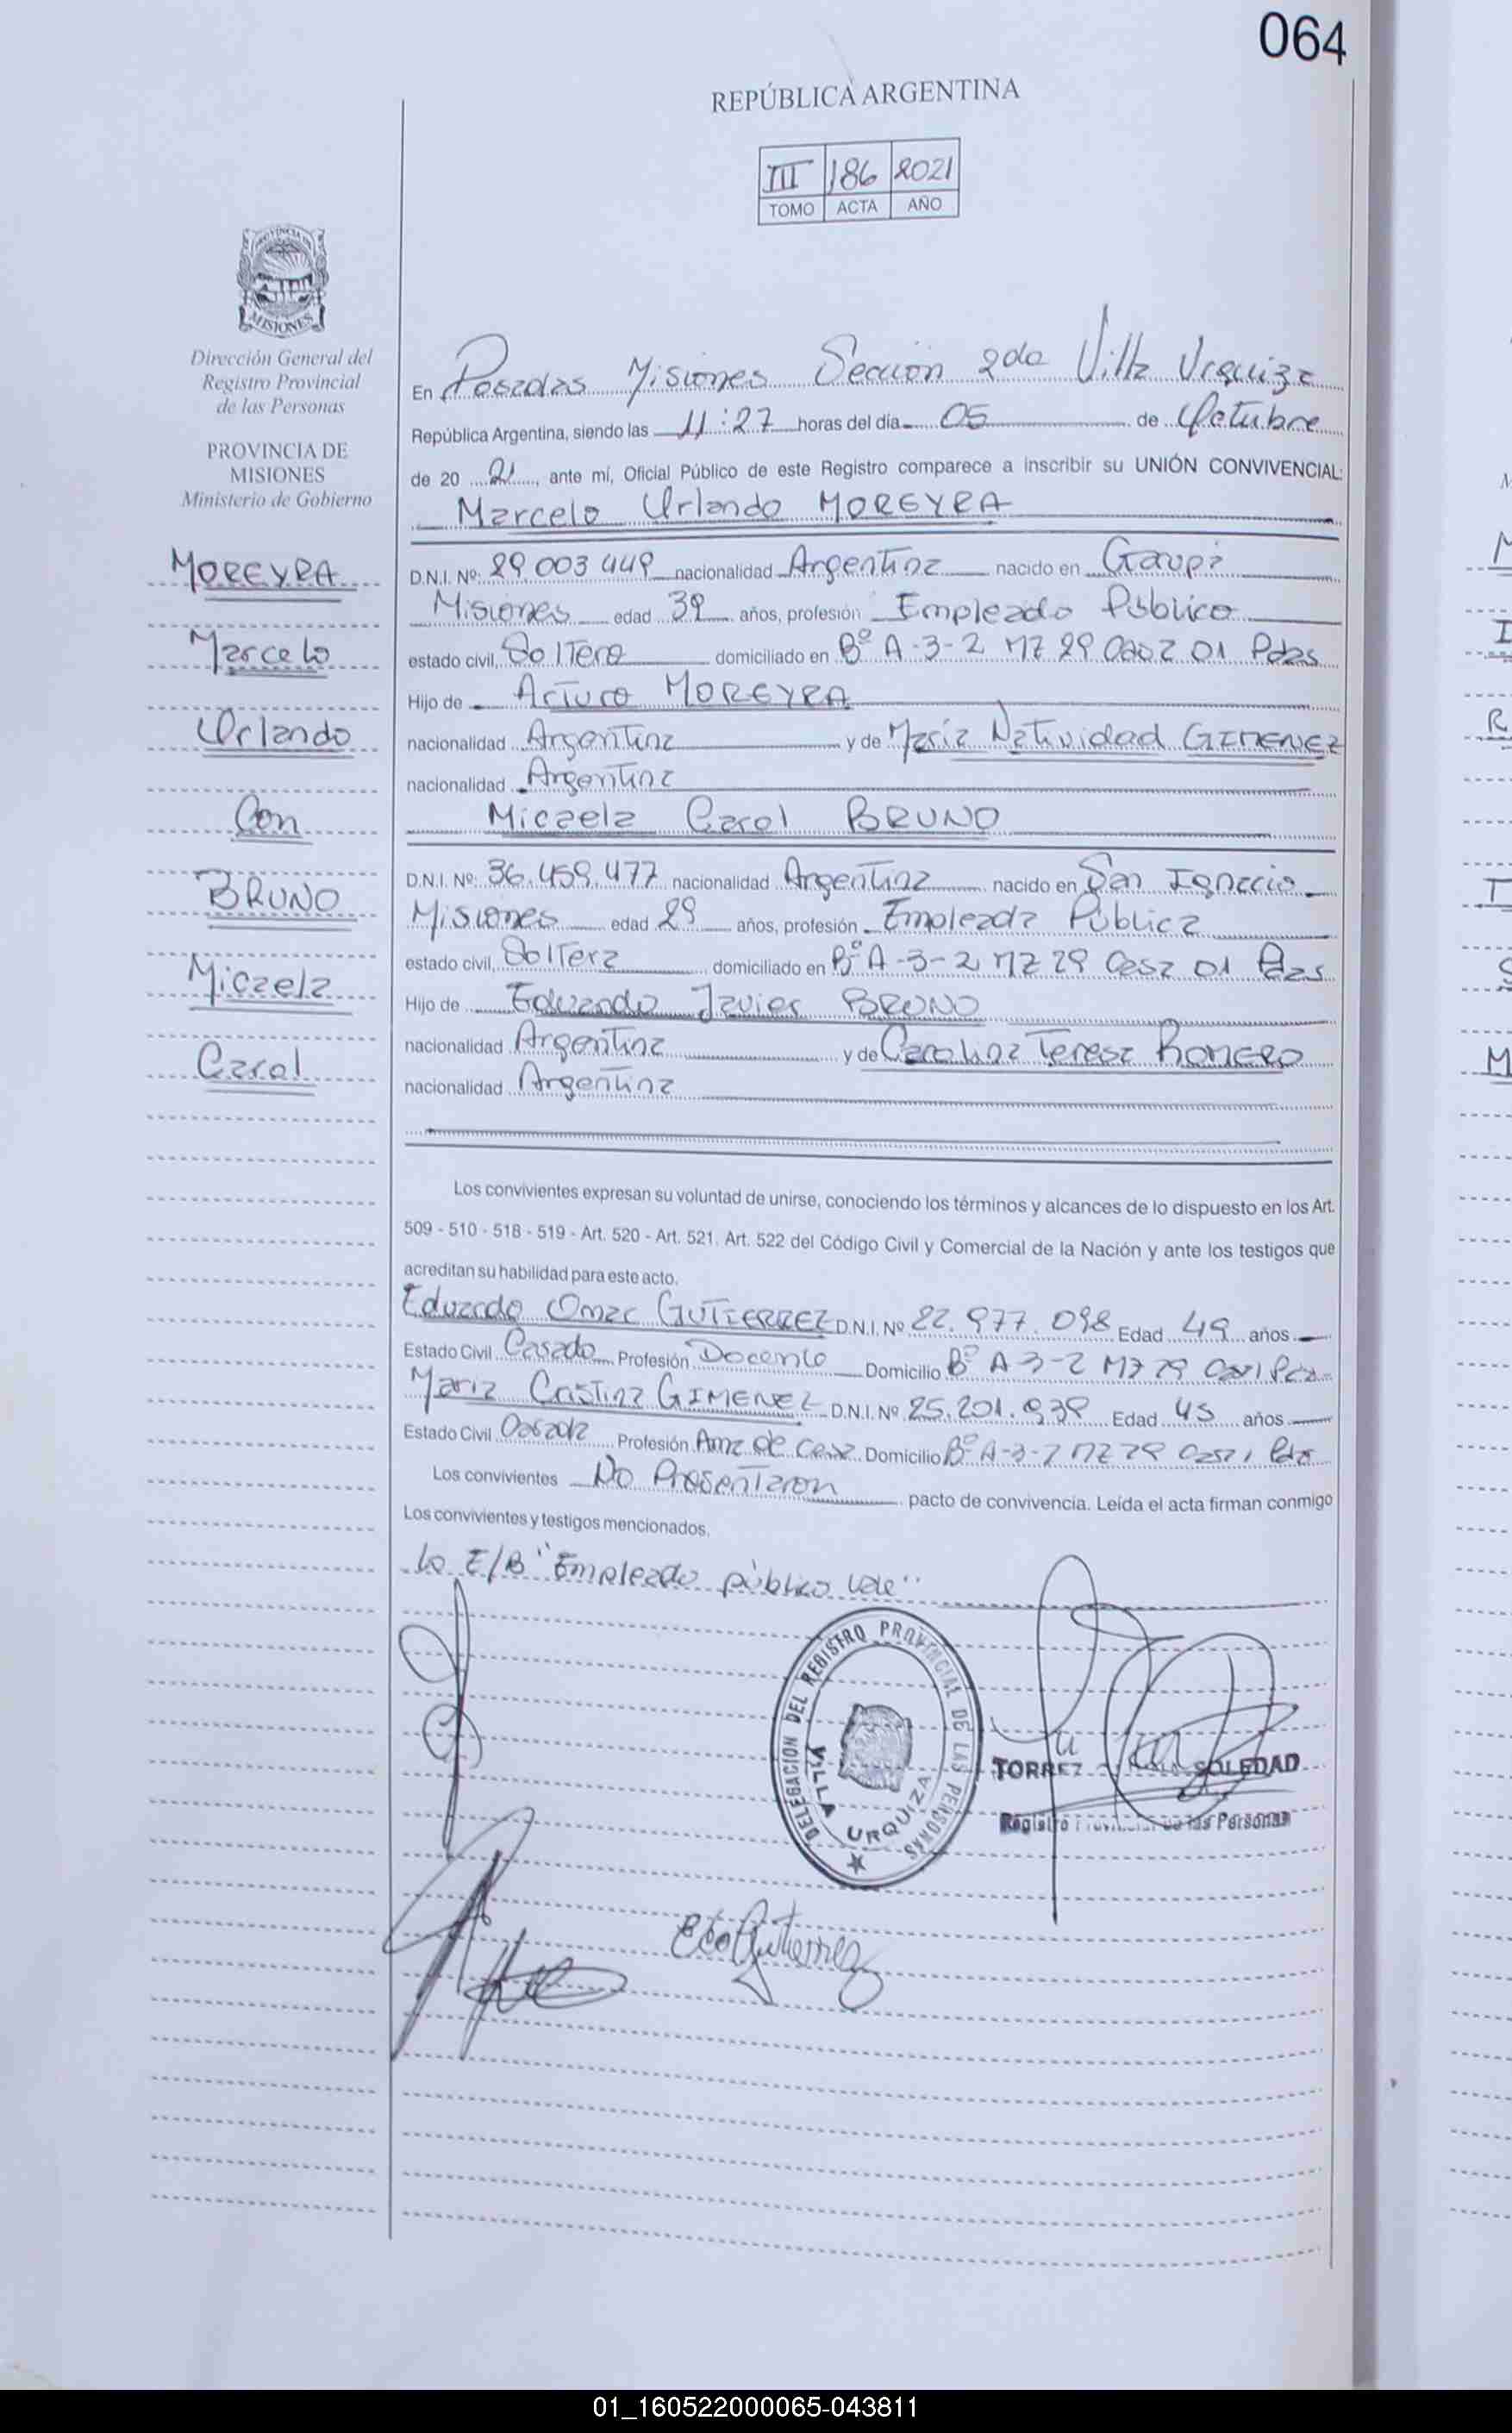 064
REPÚBLICA ARGENTINA
III 186 2021
TOMO ACTA AÑO
MISIONES
Dirección General del
Registro Provincial
de las Personas
PROVINCIA DE
MISIONES
Ministerio de Gobierno
MOREYRA
Marcelo
Orlando
Con
BRUNO
Micaela
Carol
En Posadas Misiones Sección 2da Villa Urquiza
República Argentina, siendo las 11:27 horas del día 05 de Octubre
de 20 21, ante mí, Oficial Público de este Registro comparece a inscribir su UNIÓN CONVIVENCIAL:
Marcelo Orlando MOREYRA
D.N.I. Nº: 29.003.449 nacionalidad Argentina nacido en Garupá
Misiones edad 39 años, profesión Empleado Público
estado civil, Soltero domiciliado en Bº A-3-2 MZ 29 Casa 01 Pdas
Hijo de Arturo MOREYRA
nacionalidad Argentina y de María Natividad GIMENEZ
nacionalidad Argentina
Micaela Carol BRUNO
D.N.I. Nº: 36.459.477 nacionalidad Argentina nacido en San Ignacio
Misiones edad 29 años, profesión Empleada Pública
estado civil, Soltera domiciliado en Bº A-3-2 MZ 29 Casa 01 Pdas
Hijo de Eduardo Javier BRUNO
nacionalidad Argentina y de Carolina Teresa ROMERO
nacionalidad Argentina
Los convivientes expresan su voluntad de unirse, conociendo los términos y alcances de lo dispuesto en los Art.
509 - 510 - 518 - 519 - Art. 520 - Art. 521. Art. 522 del Código Civil y Comercial de la Nación y ante los testigos que
acreditan su habilidad para este acto.
Eduardo Omar GUTIERREZ D.N.I. Nº 22.977.098 Edad 49 años
Estado Civil Casado Profesión Docente Domicilio Bº A-3-2 MZ 29
María Cristina GIMENEZ D.N.I. Nº 25.201.939 Edad 45 años
Estado Civil Casada Profesión Ama de Casa Domicilio Bº A-3-2 MZ 29
Los convivientes No Presentaron pacto de convivencia. Leída el acta firman conmigo
Los convivientes y testigos mencionados.
Lo E/B "Empleado público vale"
DELEGACION DEL REGISTRO PROVINCIAL DE LAS PERSONAS
VILLA URQUIZA
TORREZ SOLEDAD
Registro Provincial de las Personas
Gutierrez
01_160522000065-043811